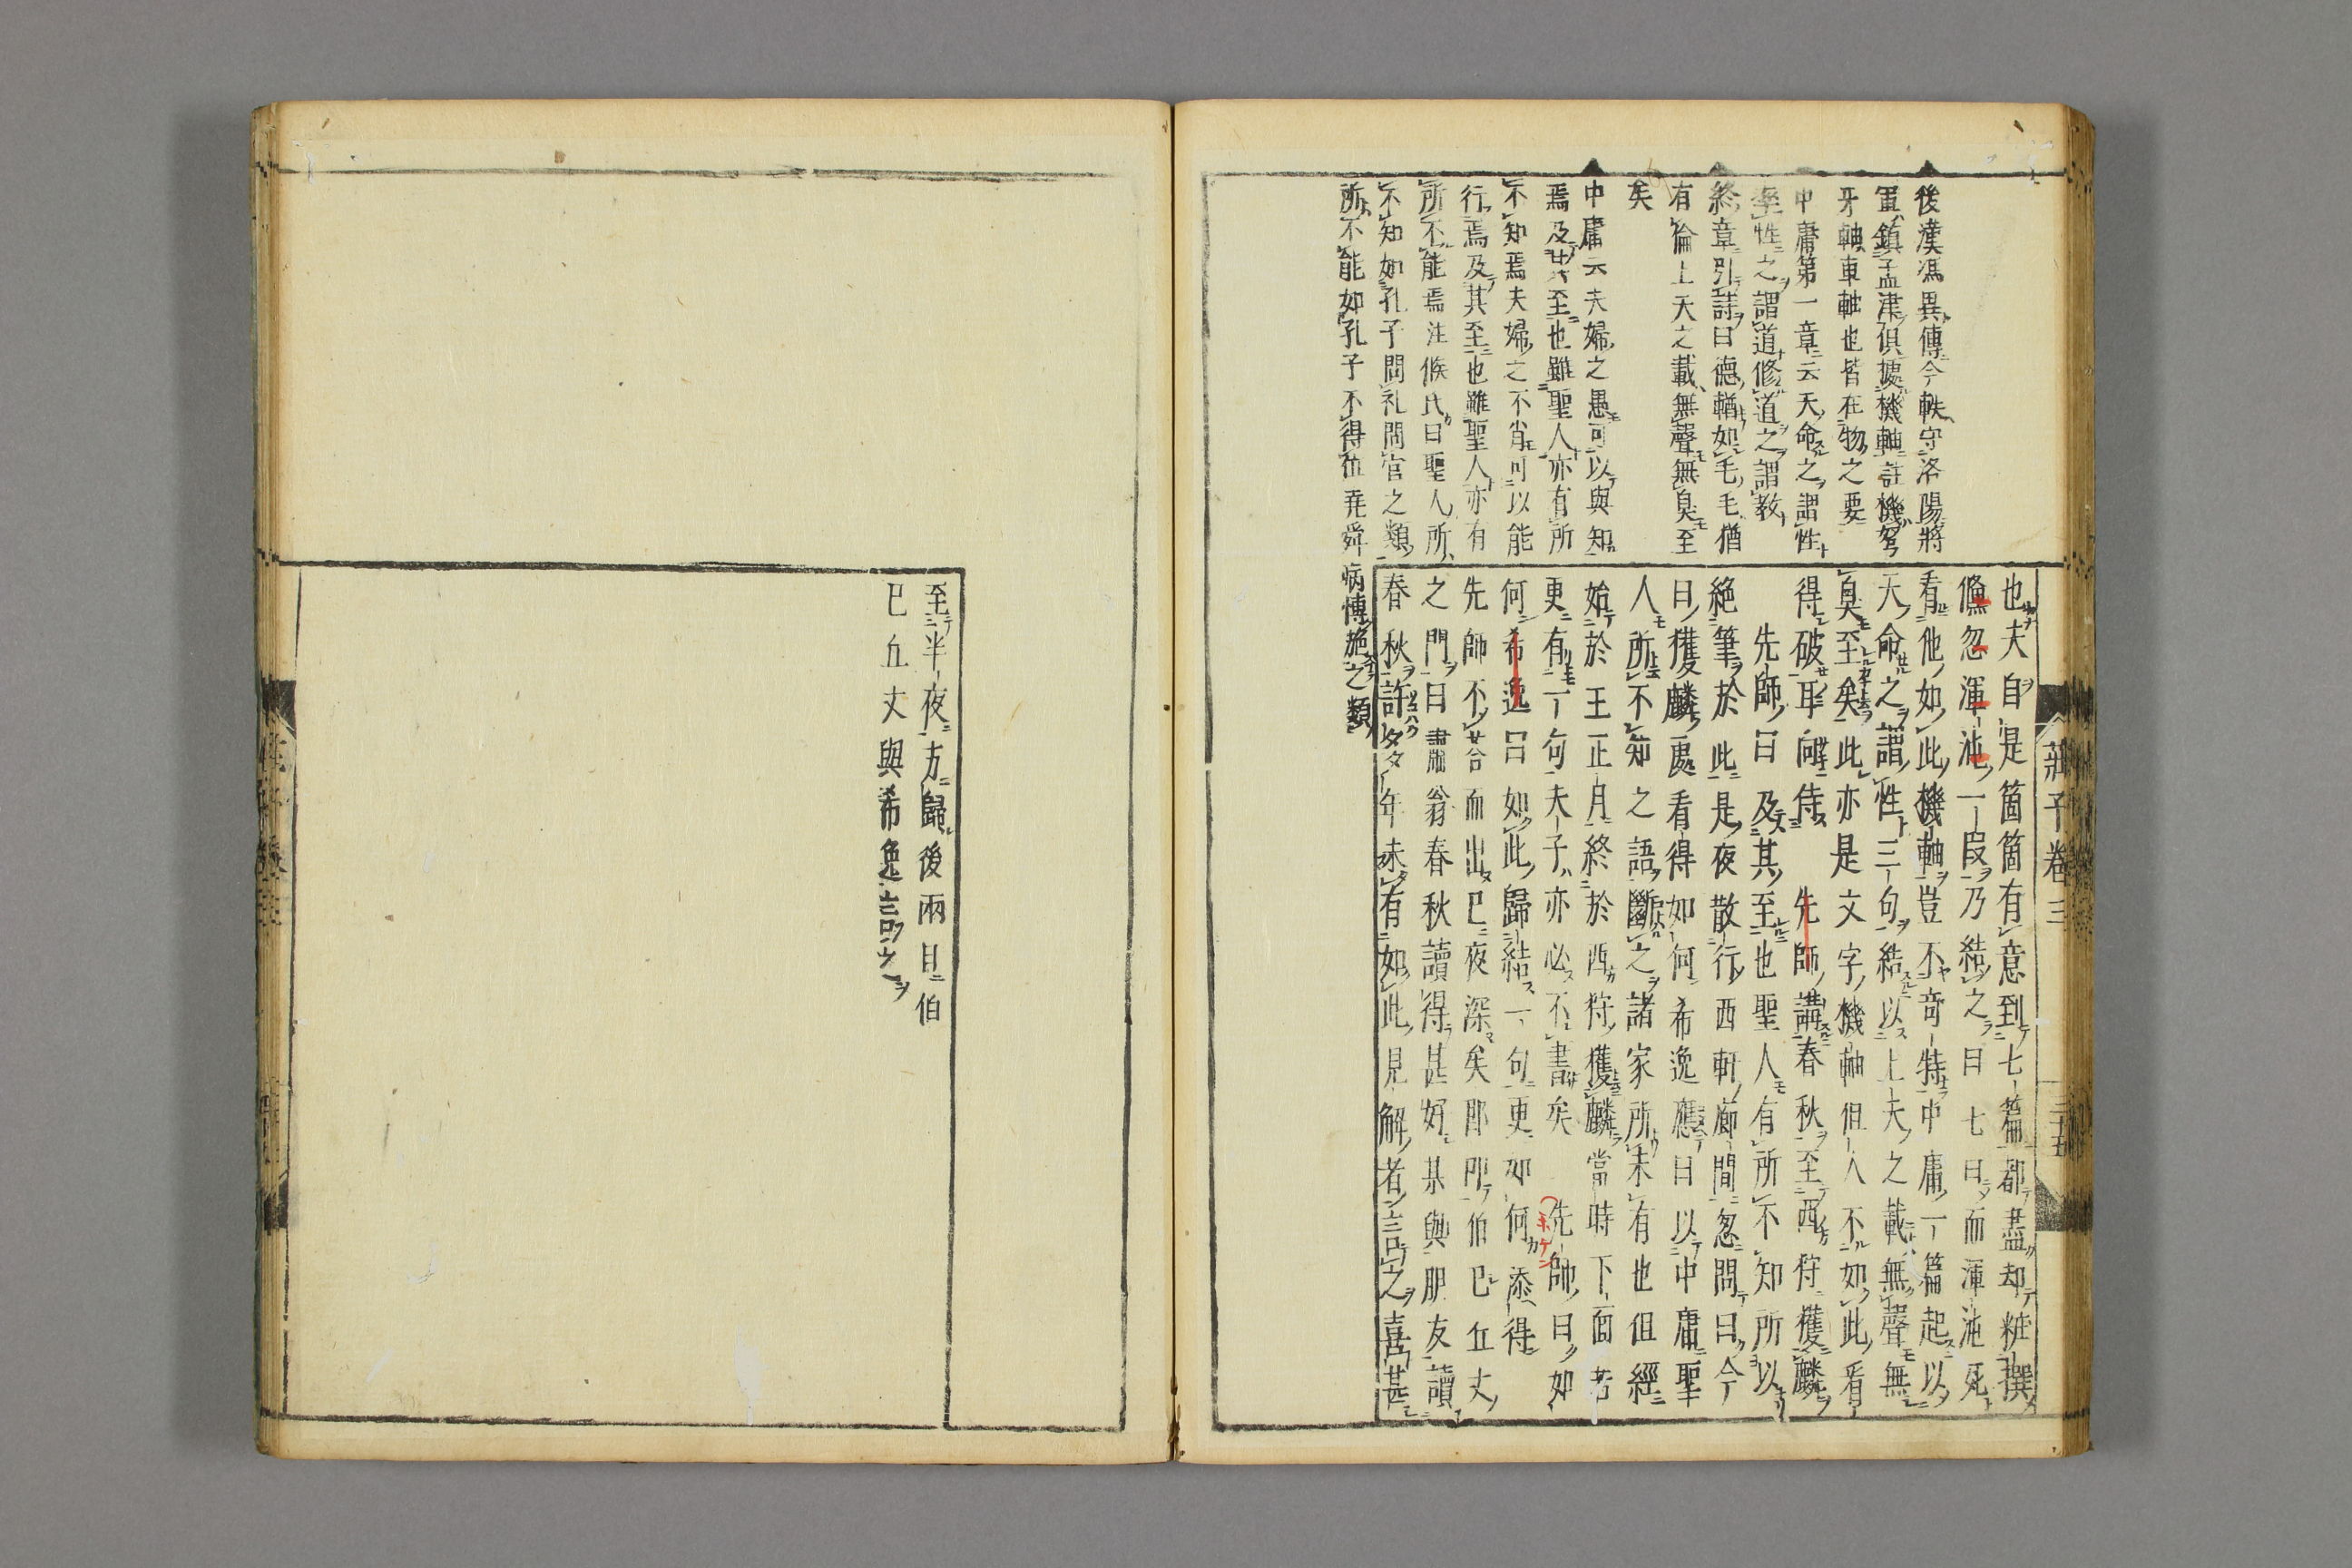 後漢馮異傳今軼守洛陽將
軍鎮孟津俱據機軸註機弩
牙軸車軸也皆在物之要
中庸第一章云天命之謂性
率性之謂道修道之謂教
終章引詩曰德輶如毛毛猶
有倫上天之載無聲無臭至
矣
中庸云夫婦之愚可以與知
焉及其至也雖聖人亦有所
不知焉夫婦之不肖可以能
行焉及其至也雖聖人亦有
所不能焉注候氏曰聖人所
不知如孔子問礼問官之類
所不能如孔子不得位堯舜病博施之類
也夫自是箇箇有意到七篇都盡却粧撰
儵忽渾沌一段乃結之曰七日而渾沌死
看他如此機軸豈不奇特中庸一篇起以
天命之謂性三句結以上天之載無聲無
臭至矣此亦是文字機軸但人不如此看
得破耳向侍先師講春秋至西狩獲麟
先師曰及其至也聖人有所不知所以
絕筆於此是夜散行西軒廊間忽問曰今
日獲麟處看得如何希逸應曰以中庸聖
人所不知之語斷之諸家所未有也但經
始於王正月終於西狩獲麟當時下一面若
更有一句夫子亦必不書矣先師曰如
何希逸曰如此歸結一句更如何添得
先師不荅而出已夜深矣即叩伯已丘丈
之門曰肅翁春秋讀得甚好某與朋友讀
春秋許多年未有如此見解者言之喜甚
莊子卷三
三十五
至半夜方歸後兩日伯
已丘丈與希逸言之